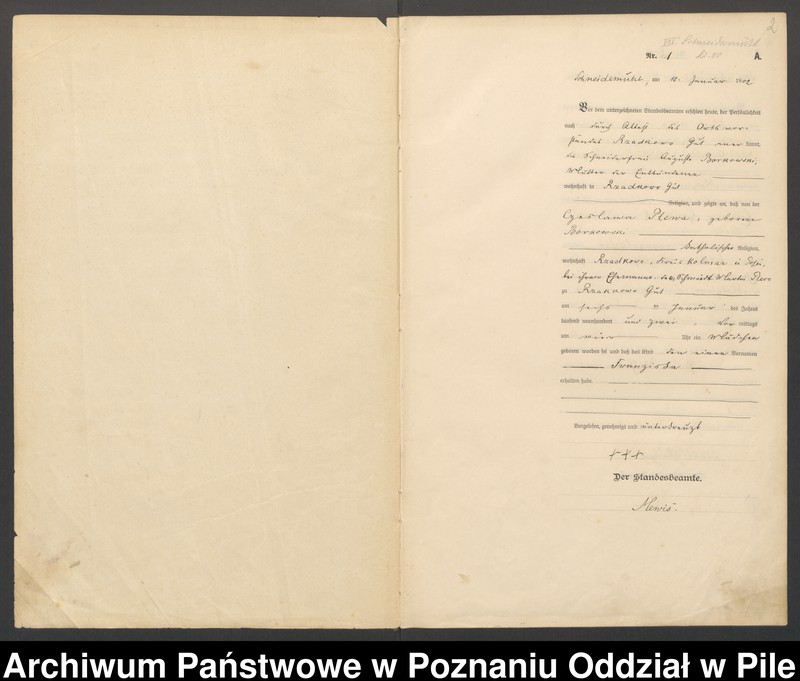 2
III. Schneidemühl
Nr. 1
A.
Schneidemühl, am 10. Januar 1902
Vor dem unterzeichneten Standesbeamten erschien heute, der Persönlichkeit
nach durch Attest des Ortsvor-
standes Rzadkowo Gut aner kannt,
die Schneiderfrau Auguste Borkowski,
Mutter der Entbundenen
wohnhaft in Rzadkowo Gut
Religion, und zeigte an, daß von der
Czeslawa Plewa, geborene
Borkowski
katholischer Religion,
wohnhaft Rzadkowo, Kreis Kolmar i. Posen,
bei ihrem Ehemanne, dem Schmiedt Martin Plewa
zu Rzadkowo Gut
am sechs ten Januar des Jahres
tausend neunhundert und zwei, Vor mittags
um Uhr ein Mädchen
geboren worden sei und daß das Kind den einen Vornamen
Franziska
erhalten habe.
Vorgelesen, genehmigt und unterkreuzt
+++
Der Standesbeamte.
Mewis.
Archiwum Państwowe w Poznaniu Oddział w Pile